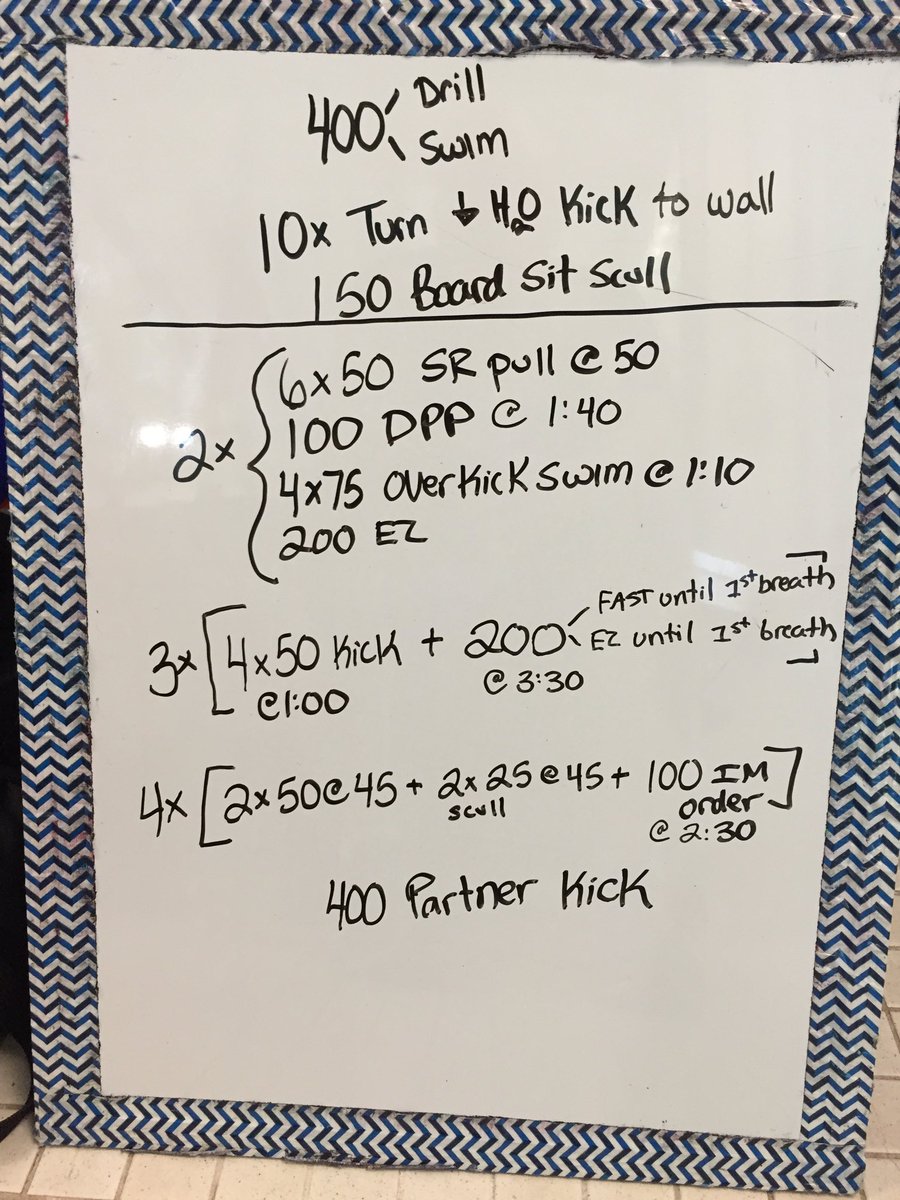 400 Drill
Swim
10x Turn ↓ H2O Kick to wall
150 Board Sit Scull
2x { 6x50 SR pull @ 50
100 DPP @ 1:40
4x75 Overkick Swim @ 1:10
200 EZ
3x [4x50 Kick + 200 FAST until 1st breath
EZ until 1st breath]
@1:00 @ 3:30
4x [2x50@45 + 2x25@45 + 100 IM]
scull order
@ 2:30
400 Partner Kick